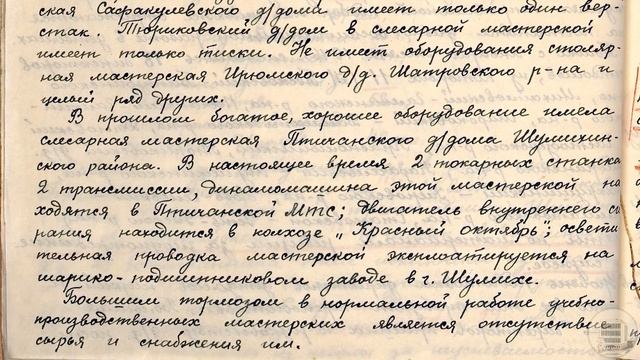 ская Сафакулевского д/дома имеет только один вер-
стак. Терсюковский д/дом в слесарной мастерской
имеет только тиски. Не имеет оборудования столяр-
ная мастерская Ирюмского д/д. Шатровского р-на и
целой ряд других.
В прошлом богатое, хорошее оборудование имела
слесарная мастерская Птичанского д/дома Шумихин-
ского района. В настоящее время 2 токарных станка
2 трансмиссии, динамомашина этой мастерской на
ходятся в Птичанской МТС; двигатель внутреннего с
рания находится в колхозе „Красный октябрь"; освети
тельная проводка мастерской эксплоатируется на
шарико-подшипниковом заводе в г. Шумихе.
Большим тормозом в нормальной работе учебно-
производственных мастерских является отсутствие
сырья и снабжения им.